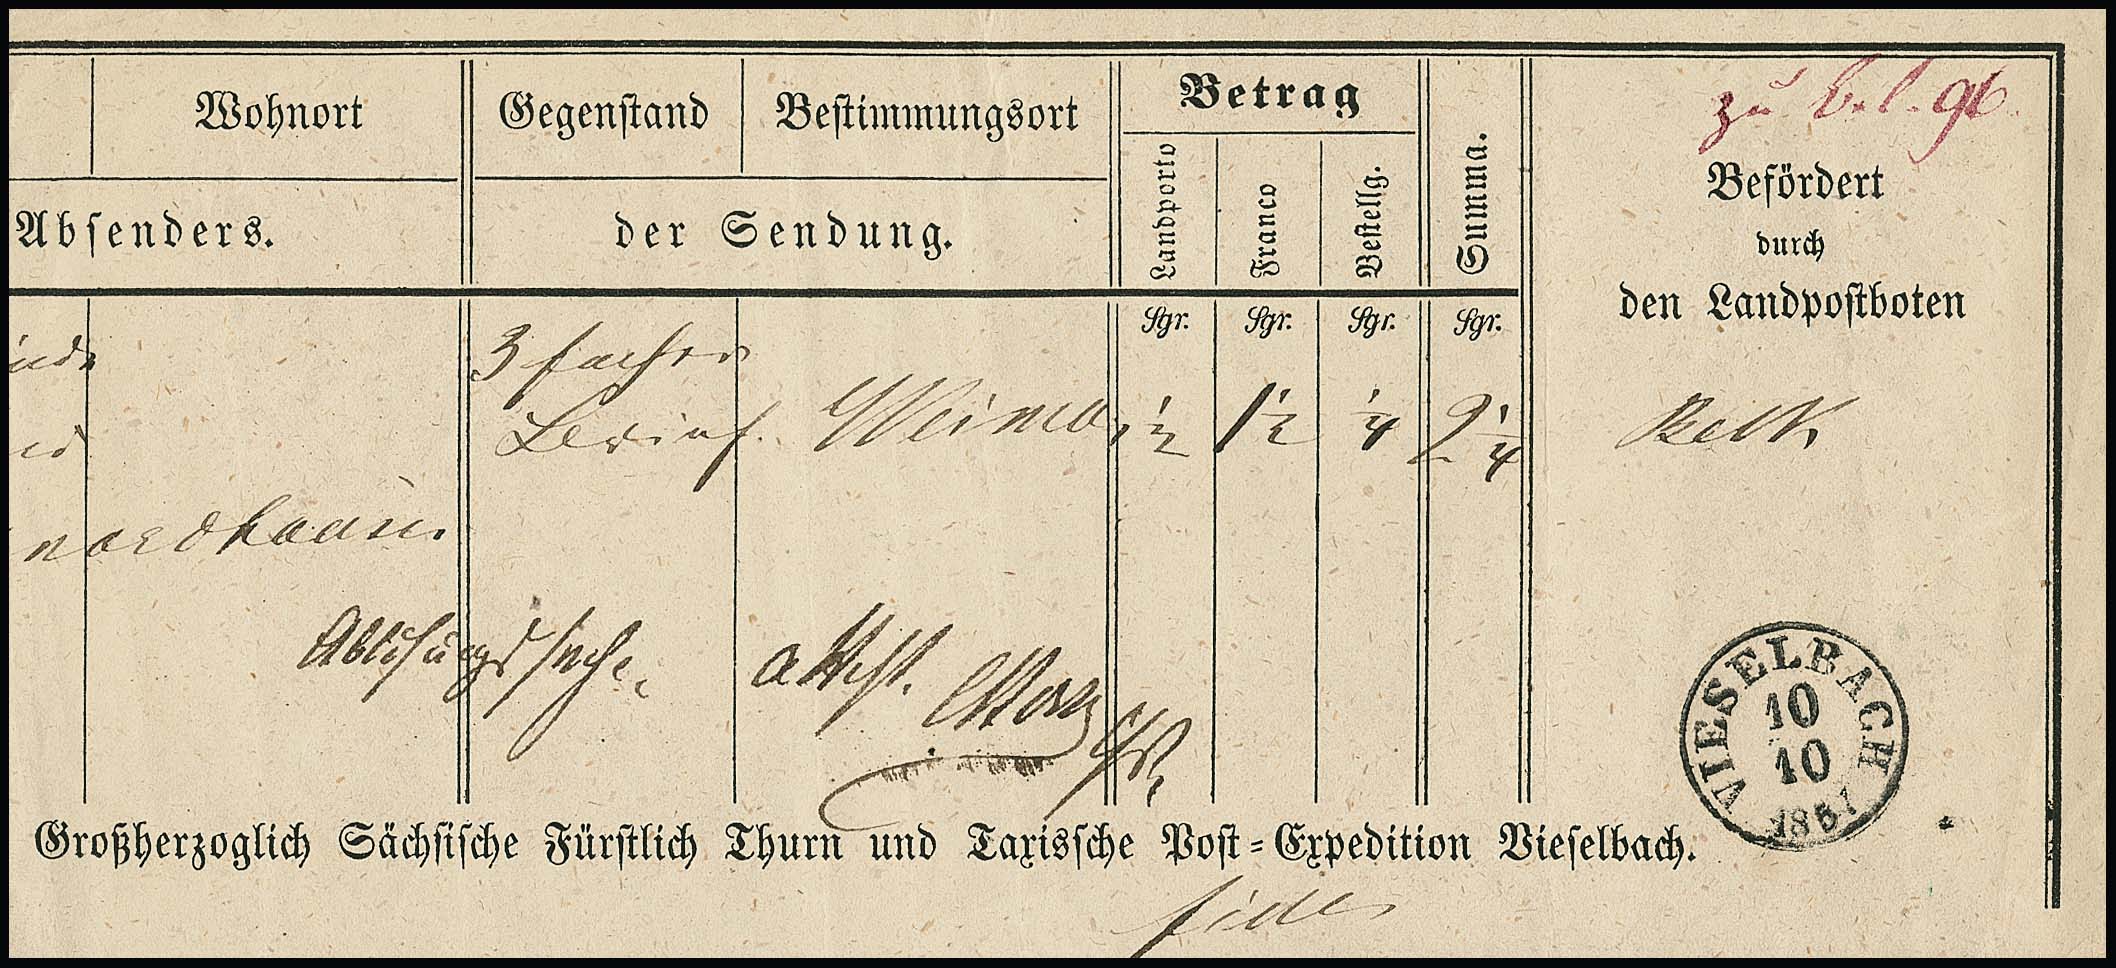 zu Bel. 96.
Wohnort
Gegenstand
Bestimmungsort
Betrag
Absenders.
der Sendung.
Landporto
Franco
Bestellg.
Summa.
Befördert
durch
den Landpostboten
Sgr.
Sgr.
Sgr.
Sgr.
3 facher
Brief
Weimar
½
1½
¼
2¼
nordhausen
Ablösungssache
attest.
VIESELBACH
10
10
1857
Großherzoglich Sächsische Fürstlich Thurn und Taxissche Post-Expedition Vieselbach.